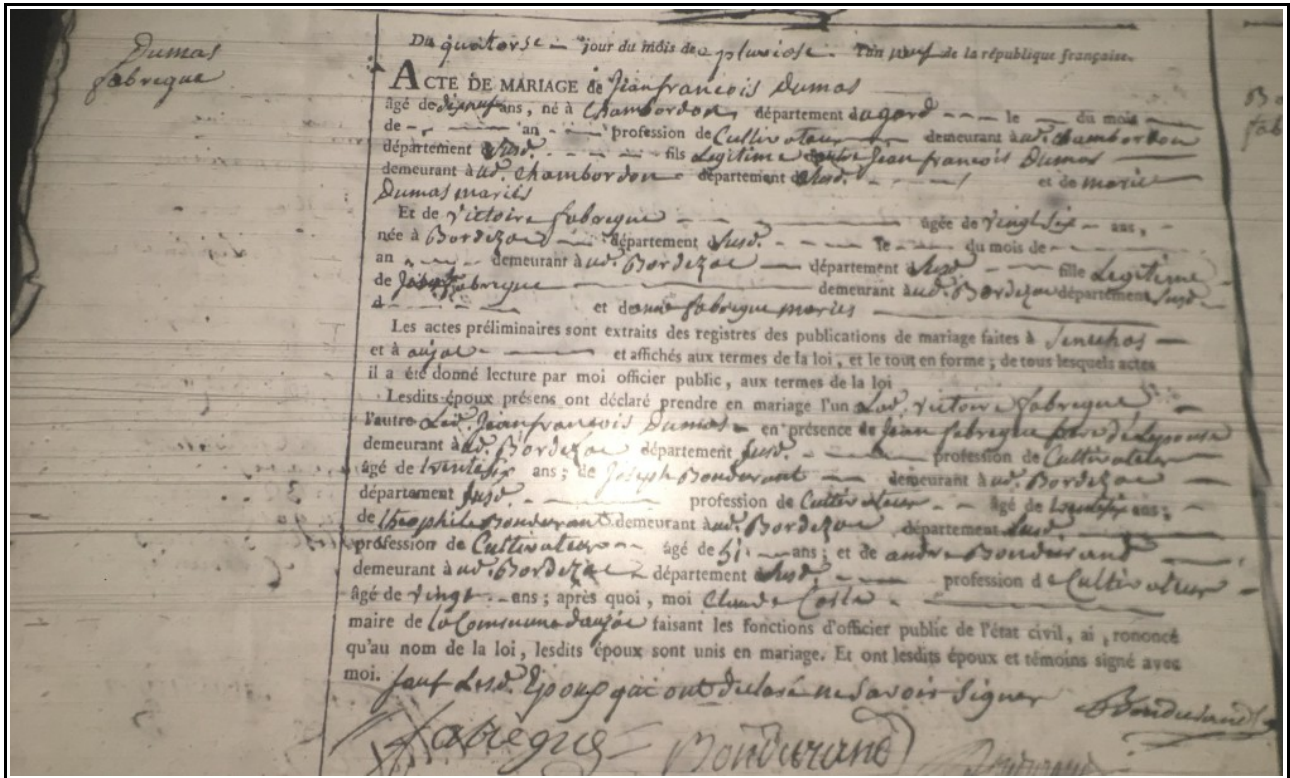 Dumas
fabregue
Du quatorse jour du mois de pluviose l'an neuf de la république française.
ACTE DE MARIAGE de Jeanfrancois Dumas
âgé de ans, né à Chambordon, département du gard le du mois
de an profession de Cultivateur demeurant à ud. chambordon
département susd. fils Legitime Jeanfrancois Dumas
demeurant à ud. Chambordon département susd. et de marie
Dumas mariés
Et de victoire fabregue âgée de vingt six ans,
née à Bordezac département susd. le du mois de
an demeurant à ud. Bordezac département susd fille Legitime
de fabregue demeurant à ud. Bordezac département susd
d et de fabregue mariés
Les actes préliminaires sont extraits des registres des publications de mariage faites à Senechas
et à aujac et affichés aux termes de la loi, et le tout en forme; de tous lesquels actes
il a été donné lecture par moi officier public, aux termes de la loi
Lesdits époux présens ont déclaré prendre en mariage l'un Lad. victoire fabregue
l'autre Led. Jeanfrancois Dumas en présence de Jean fabregue
demeurant à ud. Bordezac département susd. profession de Cultivateur
âgé de ans; de Joseph Bondurant demeurant à ud. Bordezac
département susd. profession de Cultivateur âgé de ans;
de theophile Bondurand demeurant à ud. Bordezac département susd
profession de Cultivateur âgé de ans; et de andre Bondurand
demeurant à ud. Bordezac département susd. profession de Cultivateur
âgé de vingt ans; après quoi, moi Claude Coste
maire de la Commune daujac faisant les fonctions d'officier public de l'état civil, ai, rononcé
qu'au nom de la loi, lesdits époux sont unis en mariage. Et ont lesdits époux et témoins signé avec
moi. sauf Lesd. Epoux qui ont declaré ne savoir signer Bondurand
fabregue Bondurand